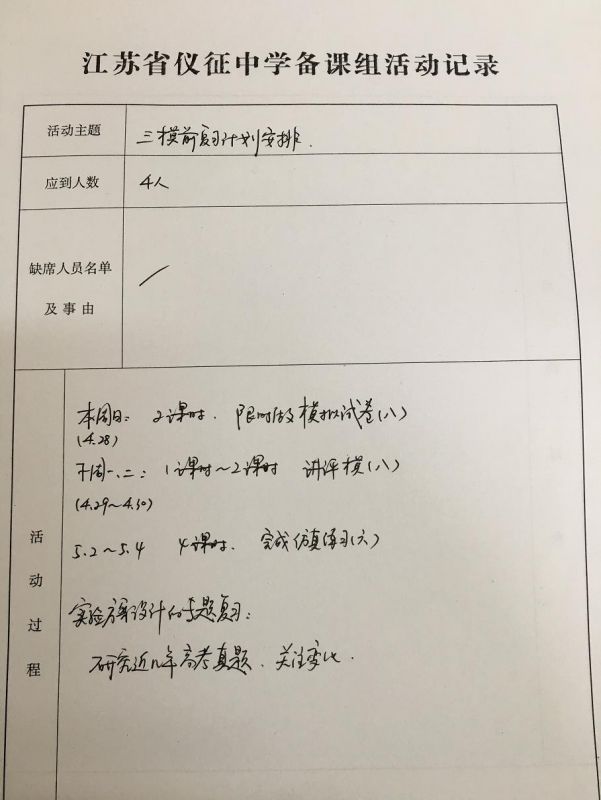 江苏省仪征中学备课组活动记录
活动主题
三模前复习计划安排.
应到人数
4人
缺席人员名单
及事由
活动过程
本周日: 2课时. 限时做模拟试卷(八)
(4.28)
下周一、二: 1课时~2课时 讲评模(八)
(4.29~4.30)
5.2~5.4 4课时. 完成仿真练习(六)
实验方案设计的专题复习:
研究近几年高考真题、关注变化.